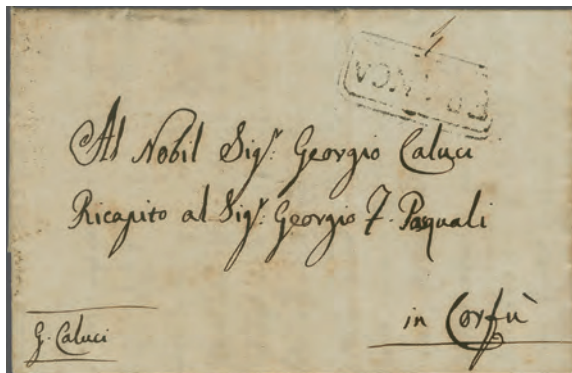 FRANCA
Al Nobil Sig.r Georgio Caluci
Ricapito al Sig.r Georgio T. Pasquali
in Corfù
G. Caluci